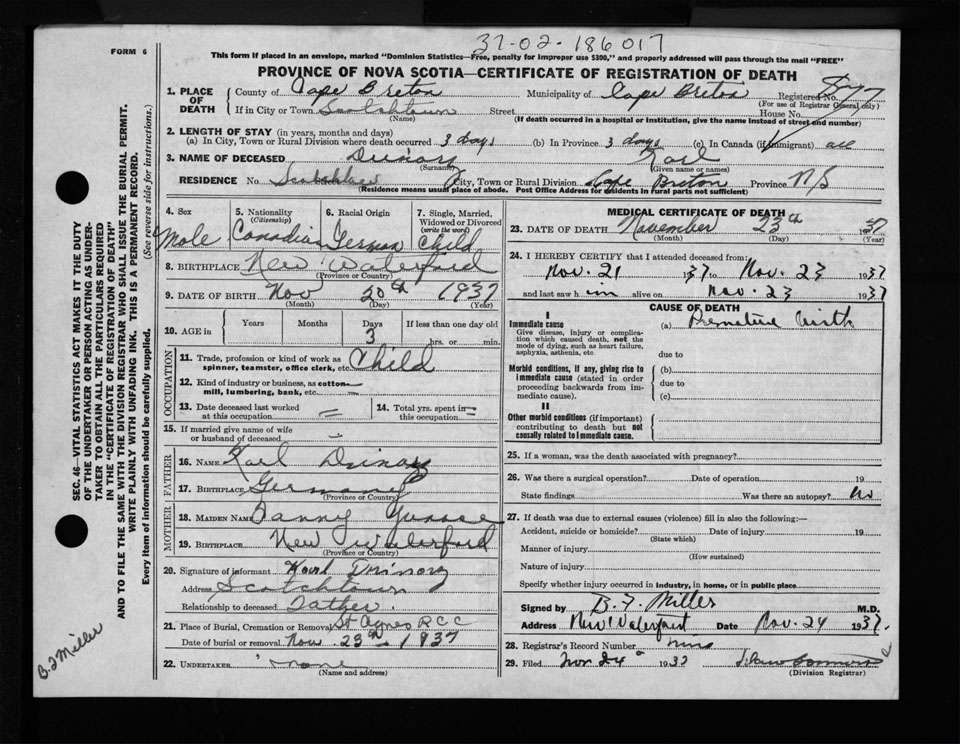 37-02-186017
FORM 6
This form if placed in an envelope, marked "Dominion Statistics—Free, penalty for improper use $300," and properly addressed will pass through the mail "FREE"
PROVINCE OF NOVA SCOTIA—CERTIFICATE OF REGISTRATION OF DEATH
1. PLACE OF DEATH County of Cape Breton Municipality of Cape Breton Registered No.
(For use of Registrar General only)
If in City or Town Scotchtown Street House No.
(Name) (If death occurred in a hospital or institution, give the name instead of street and number)
2. LENGTH OF STAY (in years, months and days)
(a) In City, Town or Rural Division where death occurred 3 days (b) In Province 3 days (c) In Canada (if immigrant) all
3. NAME OF DECEASED Karl
(Surname) (Given name or names)
RESIDENCE No. City, Town or Rural Division Cape Breton Province N S
(Residence means usual place of abode. Post Office Address for residents in rural parts not sufficient)
4. Sex
Male
5. Nationality
(Citizenship)
Canadian
6. Racial Origin
German
7. Single, Married, Widowed or Divorced
(write the word)
Child
8. BIRTHPLACE New Waterford
(Province or Country)
9. DATE OF BIRTH Nov 20th 1937
(Month) (Day) (Year)
10. AGE in Years Months Days If less than one day old
3 hrs. or min.
OCCUPATION
11. Trade, profession or kind of work as Child
spinner, teamster, office clerk, etc.
12. Kind of industry or business, as cotton-
mill, lumbering, bank, etc.
13. Date deceased last worked
at this occupation
14. Total yrs. spent in
this occupation
15. If married give name of wife
or husband of deceased
FATHER
16. NAME Karl
17. BIRTHPLACE Germany
(Province or Country)
MOTHER
18. MAIDEN NAME
19. BIRTHPLACE New Waterford
(Province or Country)
20. Signature of informant Karl
Address Scotchtown
Relationship to deceased Father.
21. Place of Burial, Cremation or Removal St Agnes R C C
Date of burial or removal Nov. 23rd 1937
22. UNDERTAKER none
(Name and address)
MEDICAL CERTIFICATE OF DEATH
23. DATE OF DEATH November 23th 1937
(Month) (Day) (Year)
24. I HEREBY CERTIFY that I attended deceased from:
Nov. 21 1937 to Nov. 23 1937
and last saw him alive on Nov. 23 1937
CAUSE OF DEATH
I
Immediate cause
Give disease, injury or complication which caused death, not the mode of dying, such as heart failure, asphyxia, asthenia, etc.
(a) Premature birth
due to
Morbid conditions, if any, giving rise to immediate cause (stated in order proceeding backwards from immediate cause).
(b)
due to
(c)
II
Other morbid conditions (if important) contributing to death but not causally related to immediate cause.
25. If a woman, was the death associated with pregnancy?
26. Was there a surgical operation? Date of operation 19
State findings Was there an autopsy? No
27. If death was due to external causes (violence) fill in also the following:—
Accident, suicide or homicide? Date of injury 19
(State which)
Manner of injury
(How sustained)
Nature of injury
Specify whether injury occurred in industry, in home, or in public place
Signed by B. F. Miller M.D.
Address New Waterford Date Nov. 24 1937.
28. Registrar's Record Number
29. Filed Nov 24 1937
(Division Registrar)
SEC. 46—VITAL STATISTICS ACT MAKES IT THE DUTY
OF THE UNDERTAKER OR PERSON ACTING AS UNDER-
TAKER TO OBTAIN ALL THE PARTICULARS REQUIRED
IN THE "CERTIFICATE OF REGISTRATION OF DEATH"
AND TO FILE THE SAME WITH THE DIVISION REGISTRAR WHO SHALL ISSUE THE BURIAL PERMIT.
WRITE PLAINLY WITH UNFADING INK. THIS IS A PERMANENT RECORD.
Every item of information should be carefully supplied. (See reverse side for instructions.)
B. F Miller